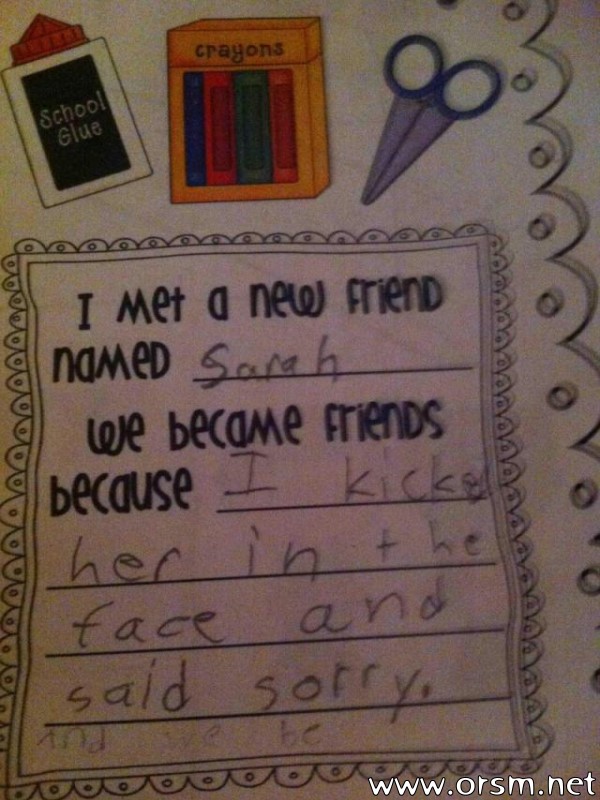 crayons
School
Glue
I met a new friend
named Sarah
We became friends
because I kicked
her in the
face and
said sorry.
And we be
www.orsm.net